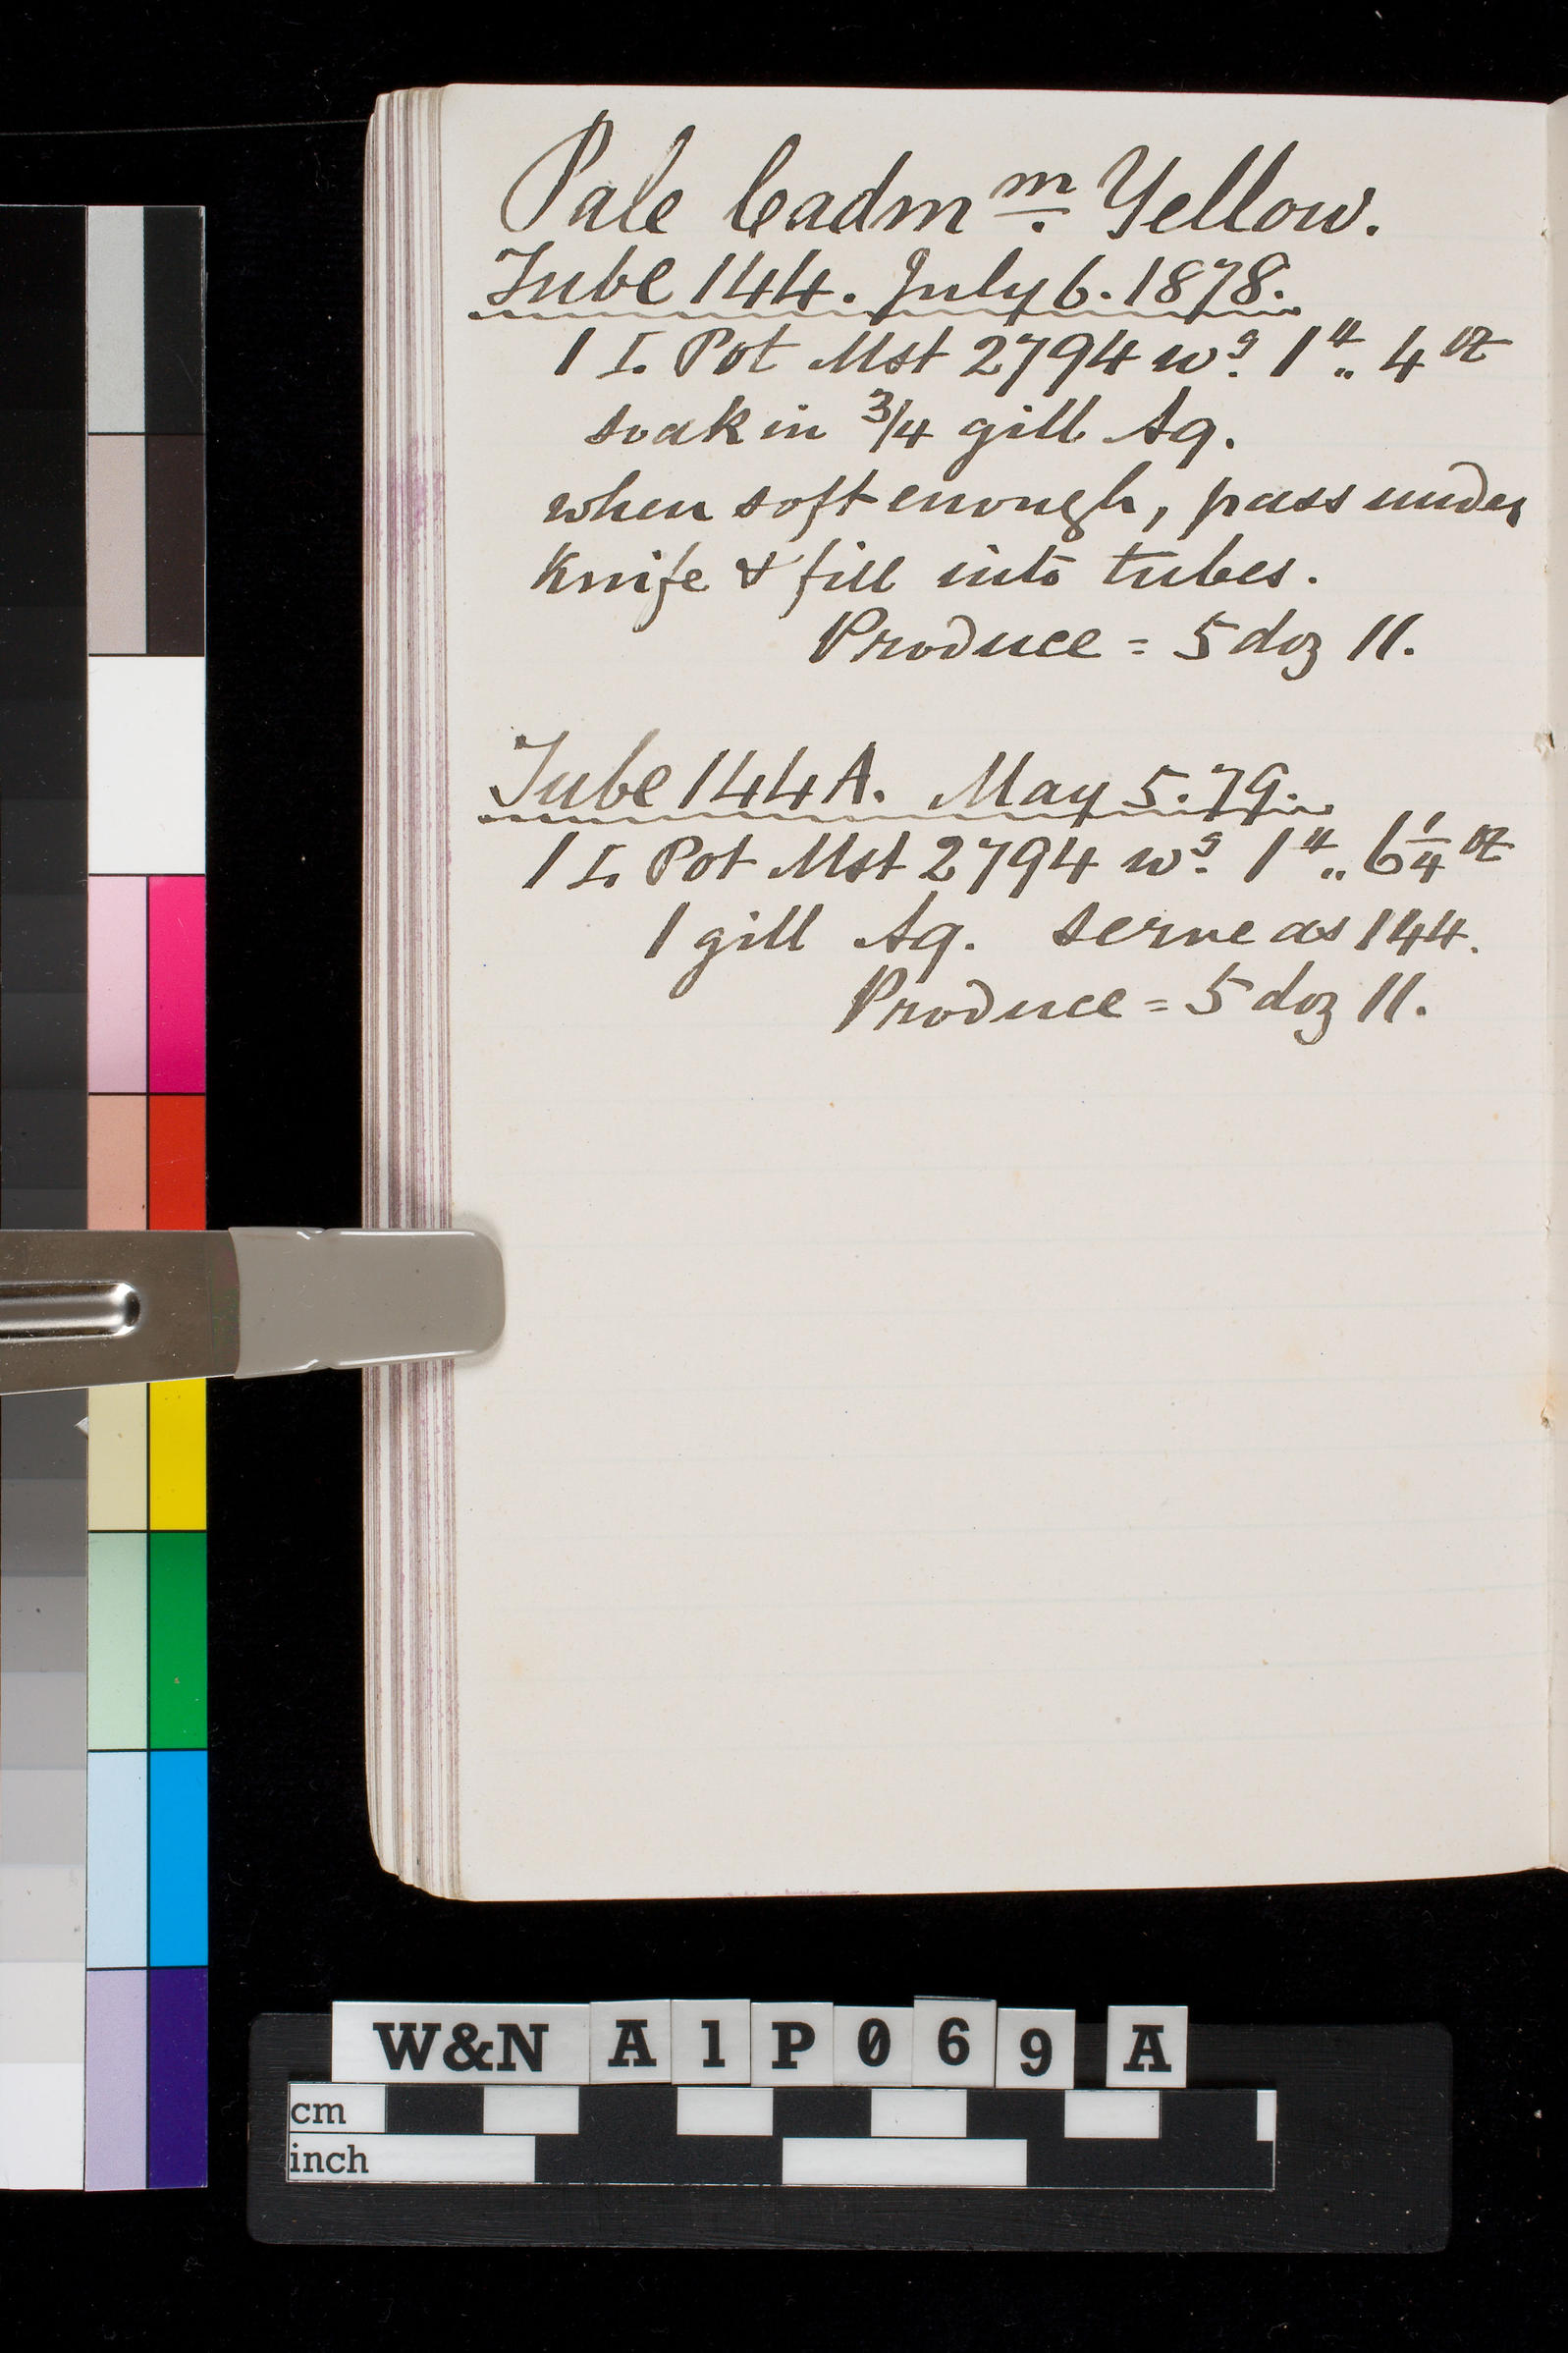 Pale Cadm m. Yellow.
Tube 144. July 6. 1878.
1 I. Pot Mst 2794 wg. 1 lb .. 4 oz
soak in 3/4 gill Aq.
when soft enough, pass under
Knife & fill into tubes.
Produce = 5 doz 11.
Tube 144A. May 5. 79.
1 I. Pot Mst 2794 wg. 1 lb .. 6 1/4 oz
1 gill Aq. serve as 144.
Produce = 5 doz 11.
W&N A1P069 A
cm
inch